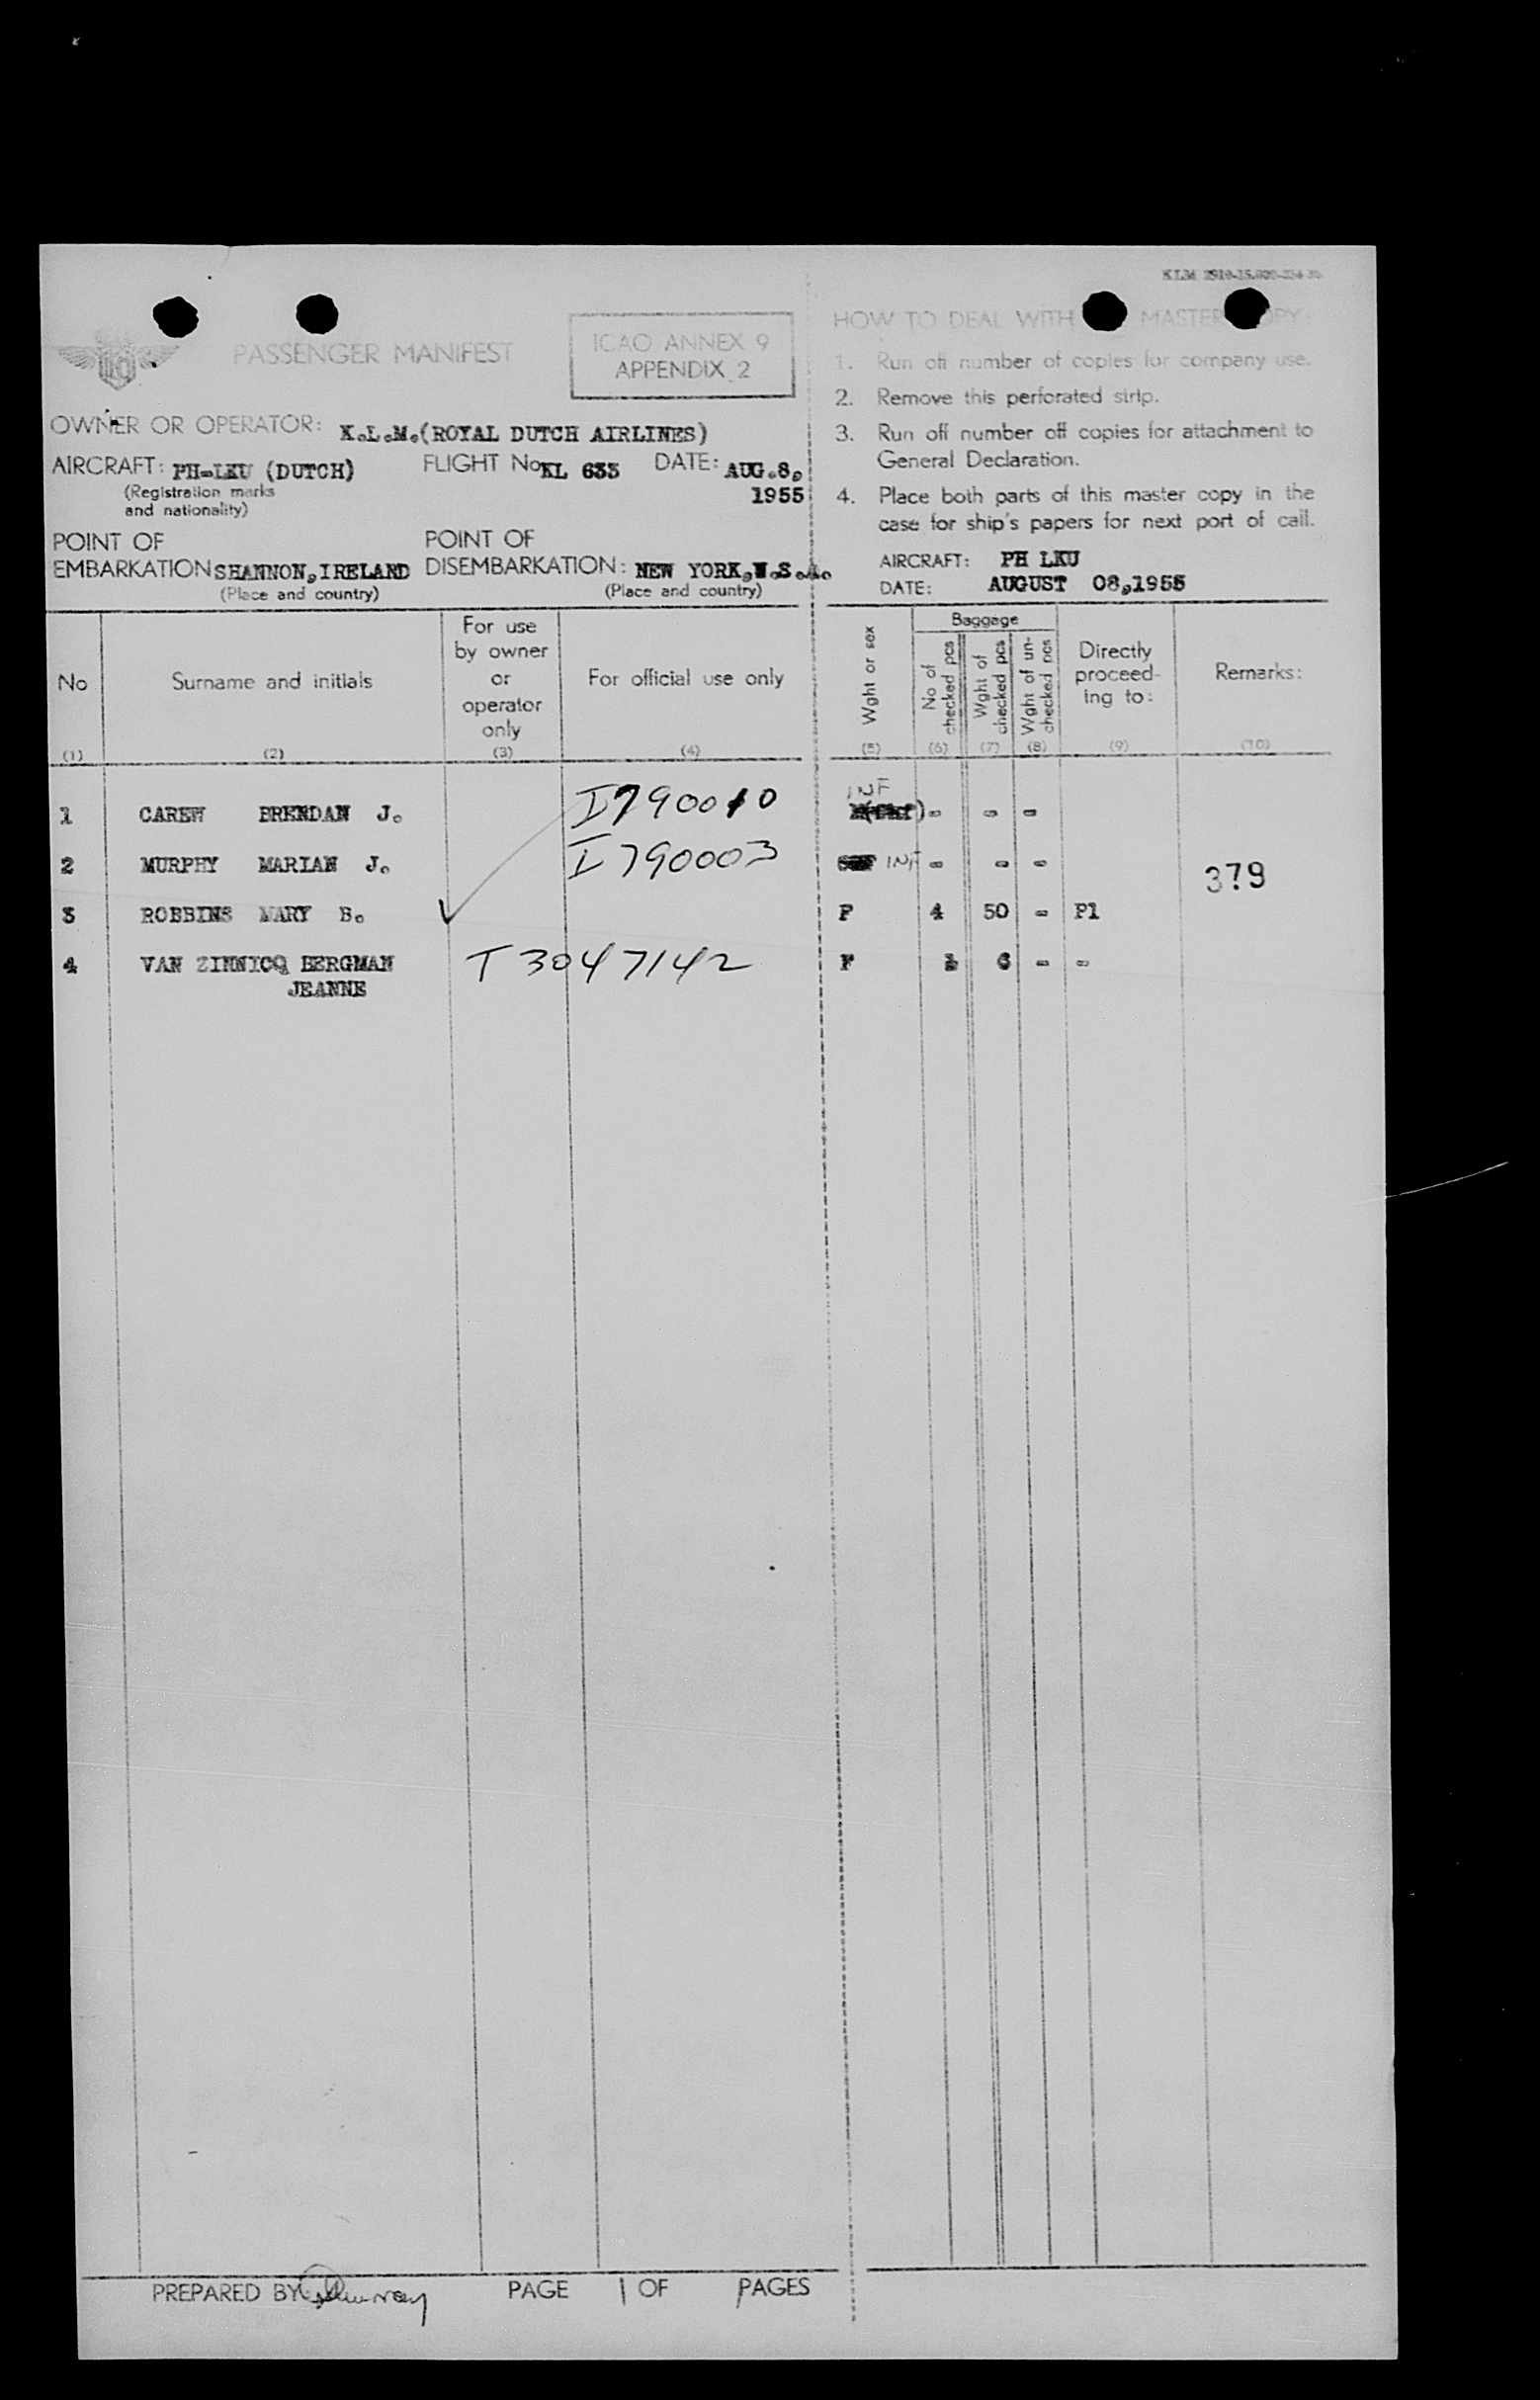 PASSENGER MANIFEST
ICAO ANNEX 9
APPENDIX 2
OWNER OR OPERATOR: K.L.M.(ROYAL DUTCH AIRLINES)
AIRCRAFT: PH-LKU (DUTCH) FLIGHT No KL 633 DATE: AUG.8,
(Registration marks 1955
and nationality)
POINT OF POINT OF
EMBARKATION SHANNON,IRELAND DISEMBARKATION: NEW YORK,U.S.A.
(Place and country) (Place and country)
HOW TO DEAL WITH MASTER COPY:
1. Run off number of copies for company use.
2. Remove this perforated strip.
3. Run off number off copies for attachment to
General Declaration.
4. Place both parts of this master copy in the
case for ship's papers for next port of call.
AIRCRAFT: PH LKU
DATE: AUGUST 08,1955
No
(1)
Surname and initials
(2)
For use
by owner
or
operator
only
(3)
For official use only
(4)
Wght or sex
(5)
Baggage
No of
checked pcs
(6)
Wght of
checked pcs
(7)
Wght of un-
checked pcs
(8)
Directly
proceed-
ing to:
(9)
Remarks:
(10)
1 CAREW BRENDAN J. I790010 INF - - -
2 MURPHY MARIAN J. I790003 INF - - -
379
3 ROBBINS MARY B. F 4 50 - P1
4 VAN ZINNICQ BERGMAN T3047142 F 1 6 - -
JEANNE
PREPARED BY PAGE 1 OF 1 PAGES